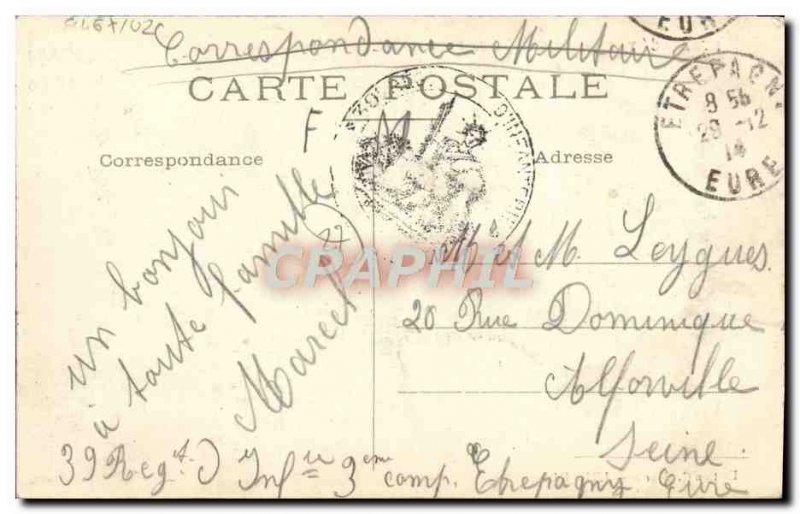 Correspondance Militaire
CARTE POSTALE
F M
Correspondance
Adresse
ETREPAGNY
8 56
29 -12
14
EURE
EURE
D'INFANTERIE
un bonjour
à toute famille
Marcel
CPRAPHIL
M et M. Leygues
20 Rue Dominique
Alforville
Seine
39 Regt D Infie 3eme comp. Etrepagny Eure